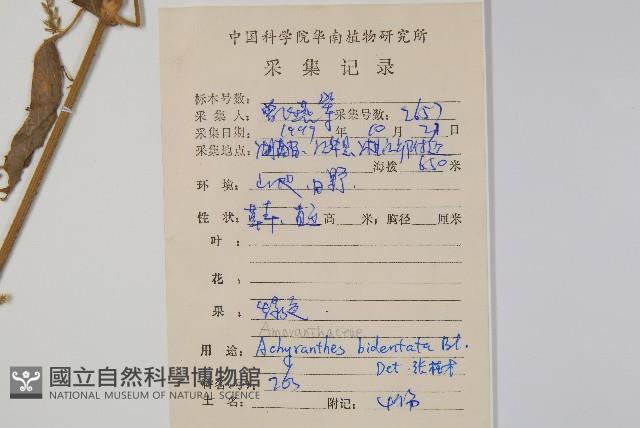 中国科学院华南植物研究所
采集记录
标本号数：
采集人： 采集号数：2657
采集日期：1999年10月21日
采集地点：
海拨 650 米
环境：山地、田野
性状：草本、直立 高 米，胸径 厘米
叶：
花：
果：绿色
Amaranthaceae
用途：Achyranthes bidentata Bl.
Det. 张桂才
263
土名： 附记：
國立自然科學博物館
NATIONAL MUSEUM OF NATURAL SCIENCE